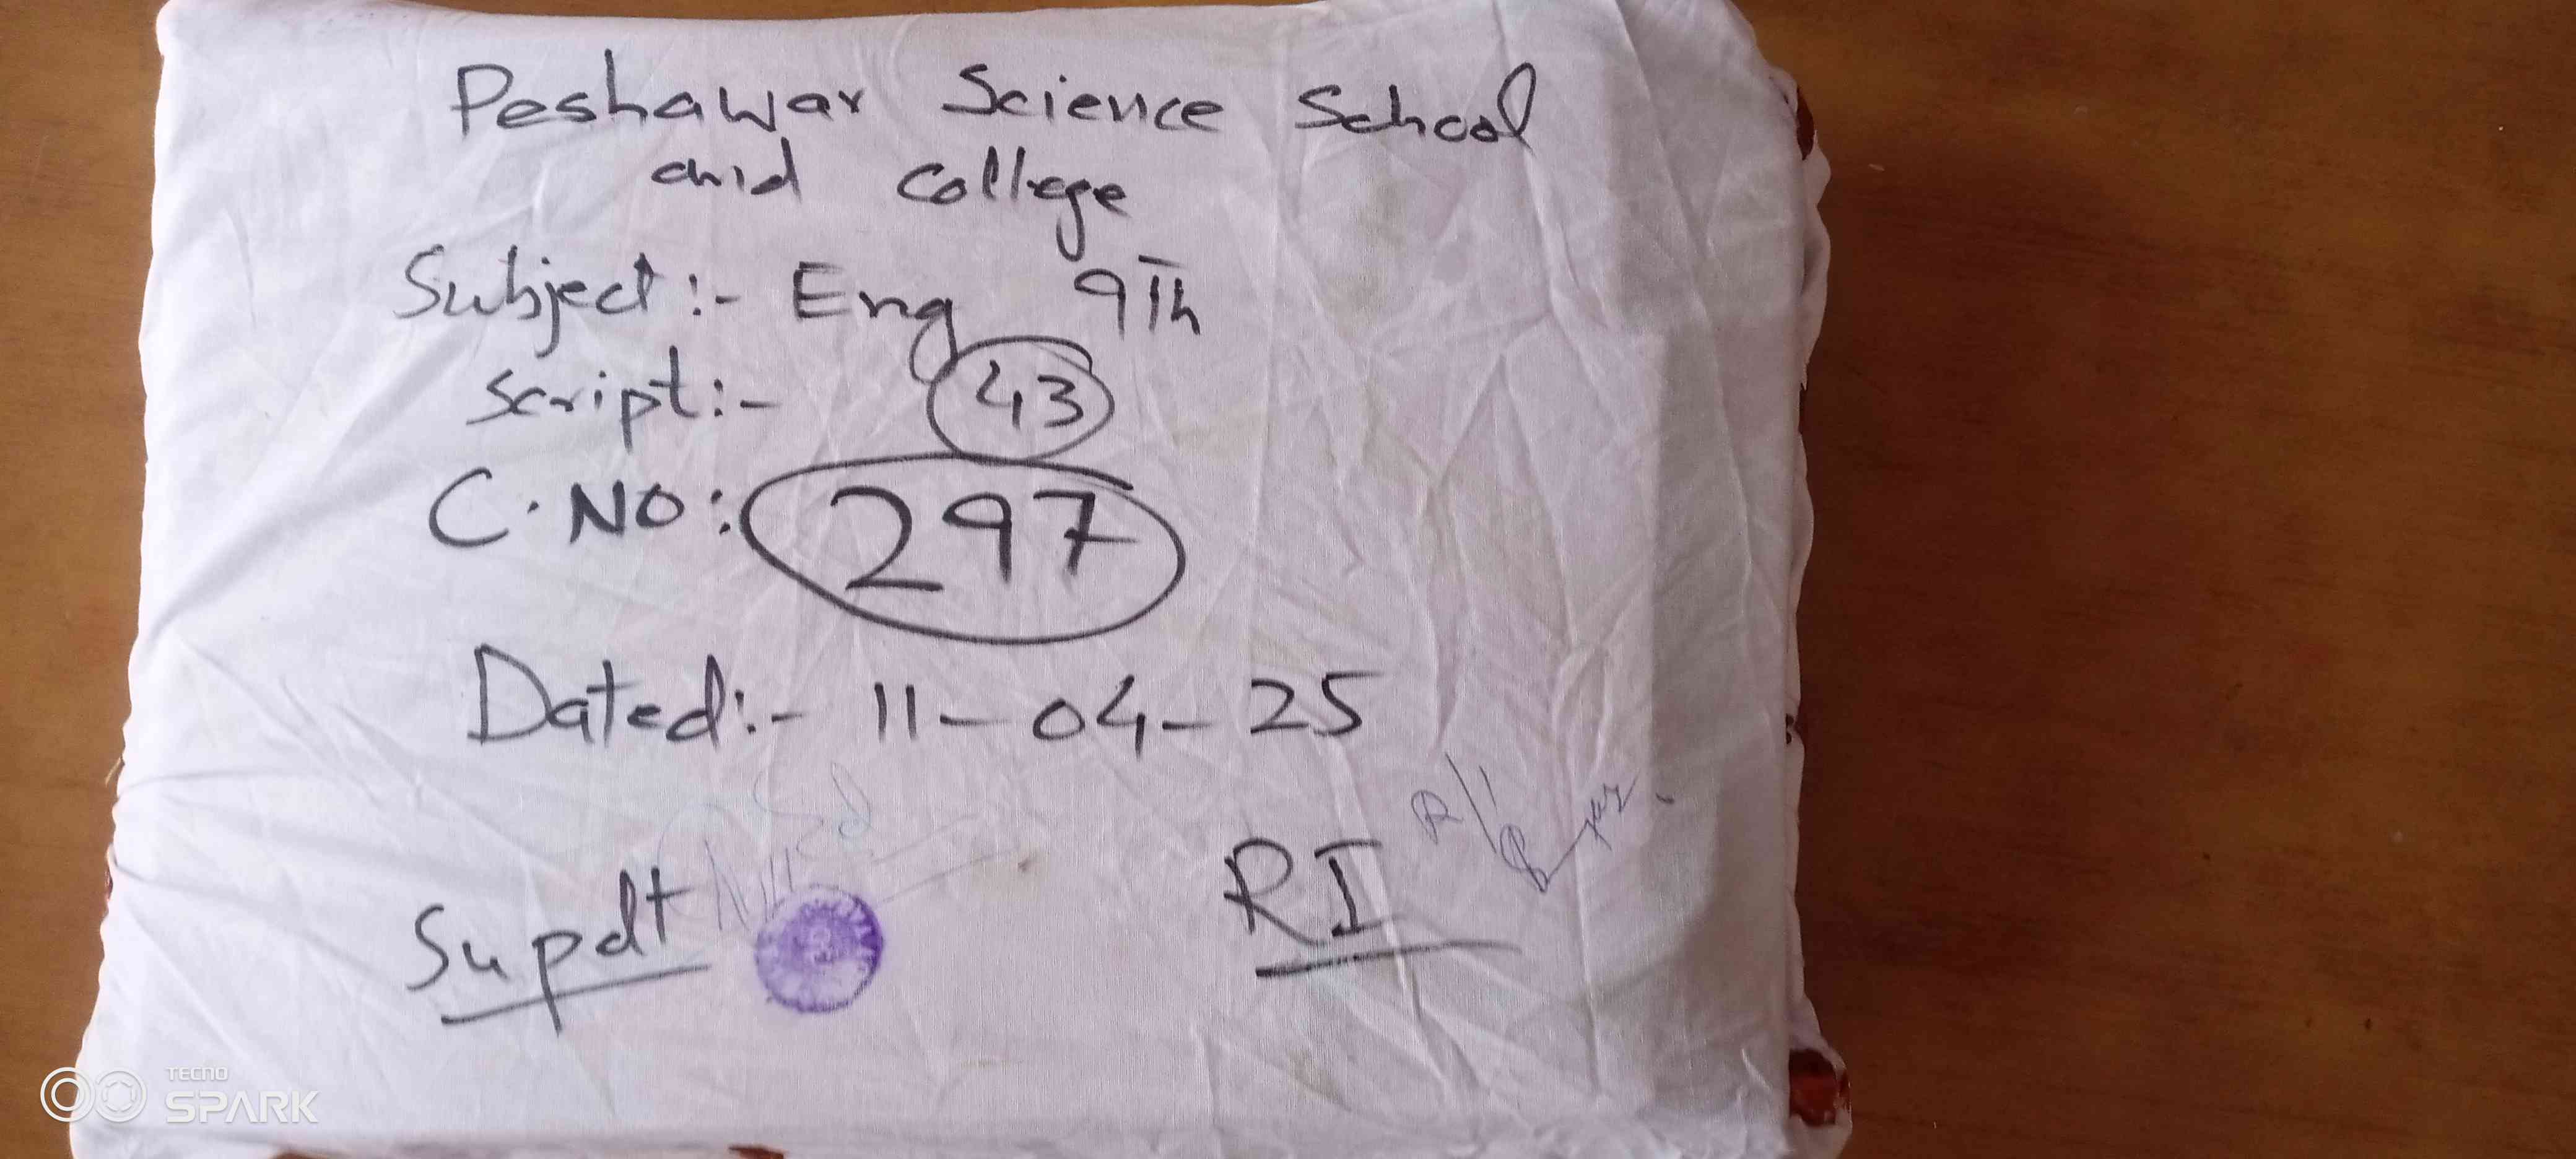 Peshawar Science School
and college
Subject:- Eng 9Th
Script:- 43
C.NO: 297
Dated:- 11-04-25
Supdt
RI
TECNO
SPARK